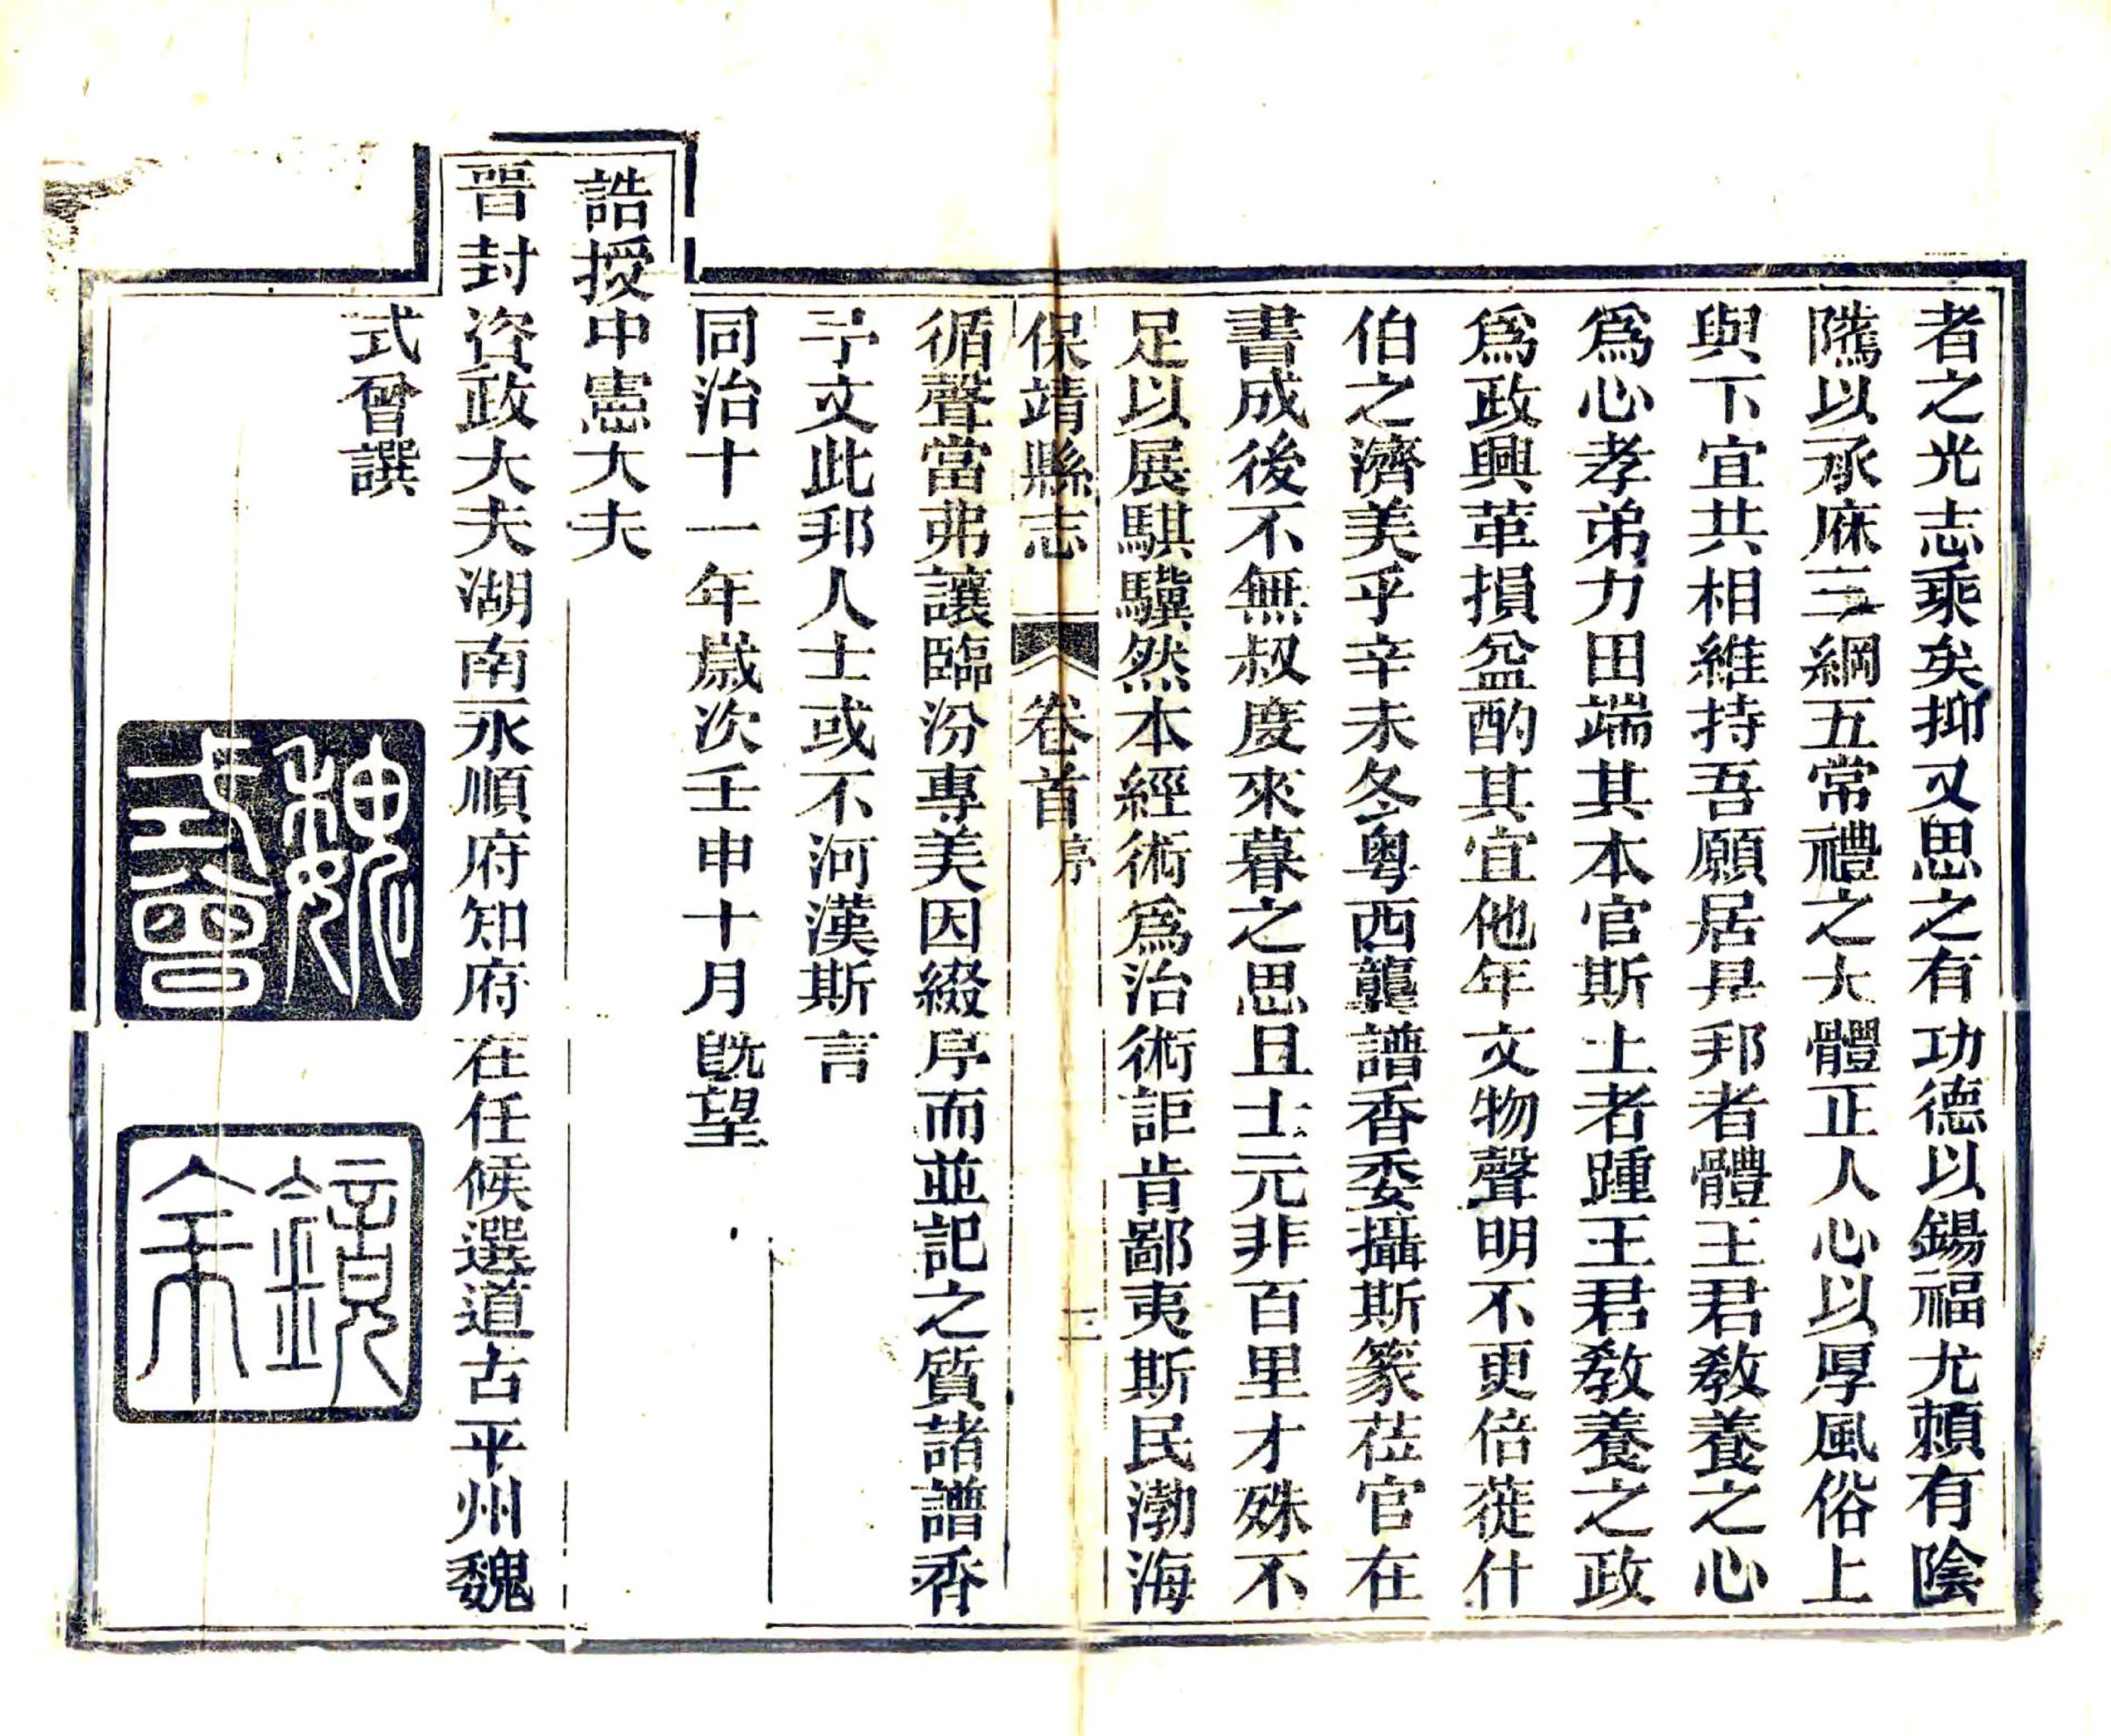 者之光志乘矣抑又思之有功德以錫福尤頼有陰
隲以承庥三綱五常禮之大體正人心以厚風俗上
與下宜共相維持吾願居是邦者體王君教養之心
爲心孝弟力田端其本官斯土者踵王君教養之政
爲政興革損益酌其宜他年文物聲明不更倍蓰什
伯之濟美乎辛未冬粤西龔譜香委攝斯篆莅官在
書成後不無叔度來暮之思且士元非百里才殊不
足以展騏驥然本經術爲治術詎肯鄙夷斯民渤海
保靖縣志 卷首 序 三
循聲當弗讓臨汾專美因綴序而並記之質諸譜香
予文此邦人士或不河漢斯言
同治十一年歲次壬申十月旣望
誥授中憲大夫
晉封資政大夫湖南永順府知府在任候選道古平州魏
式曾譔
魏式曾
鏡余